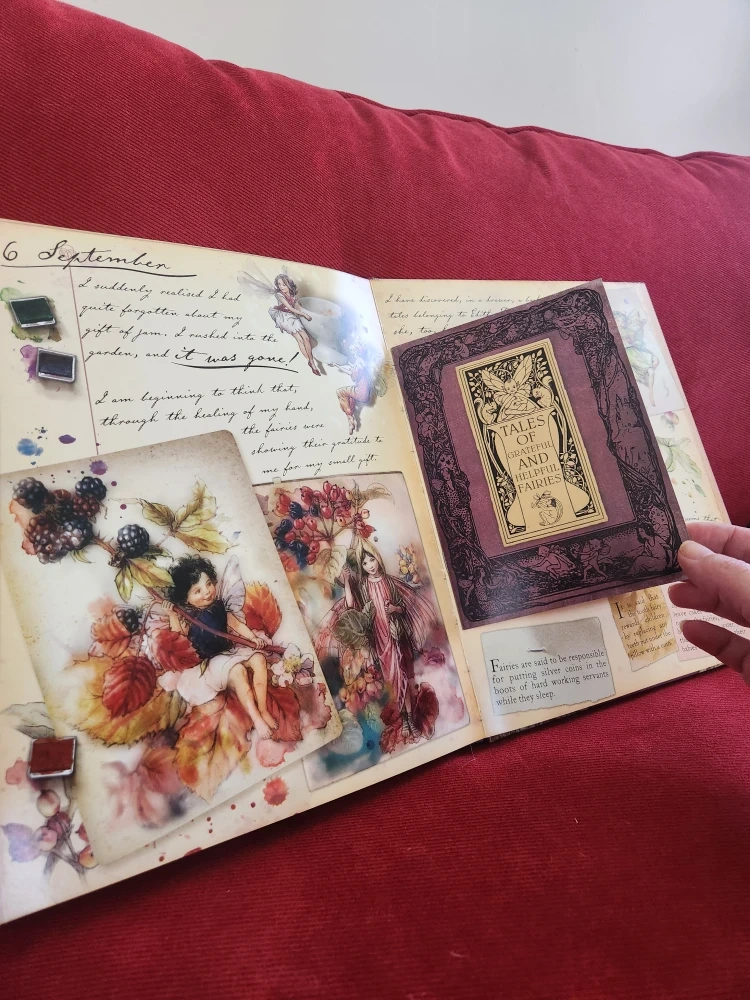 6 September
I suddenly realised I had
quite forgotten about my
gift of jam. I rushed into the
garden, and it was gone!
I am beginning to think that,
through the healing of my hand,
the fairies were
showing their gratitude to
me for my small gift.
I have discovered, in a drawer, a
tales belonging to Edith
she, too,
TALES
OF
GRATEFUL
AND
HELPFUL
FAIRIES
Fairies are said to be responsible
for putting silver coins in the
boots of hard working servants
while they sleep.
It is said that
the tooth fairy
rewards children
by replacing any
teeth put under the
pillow with a coin.